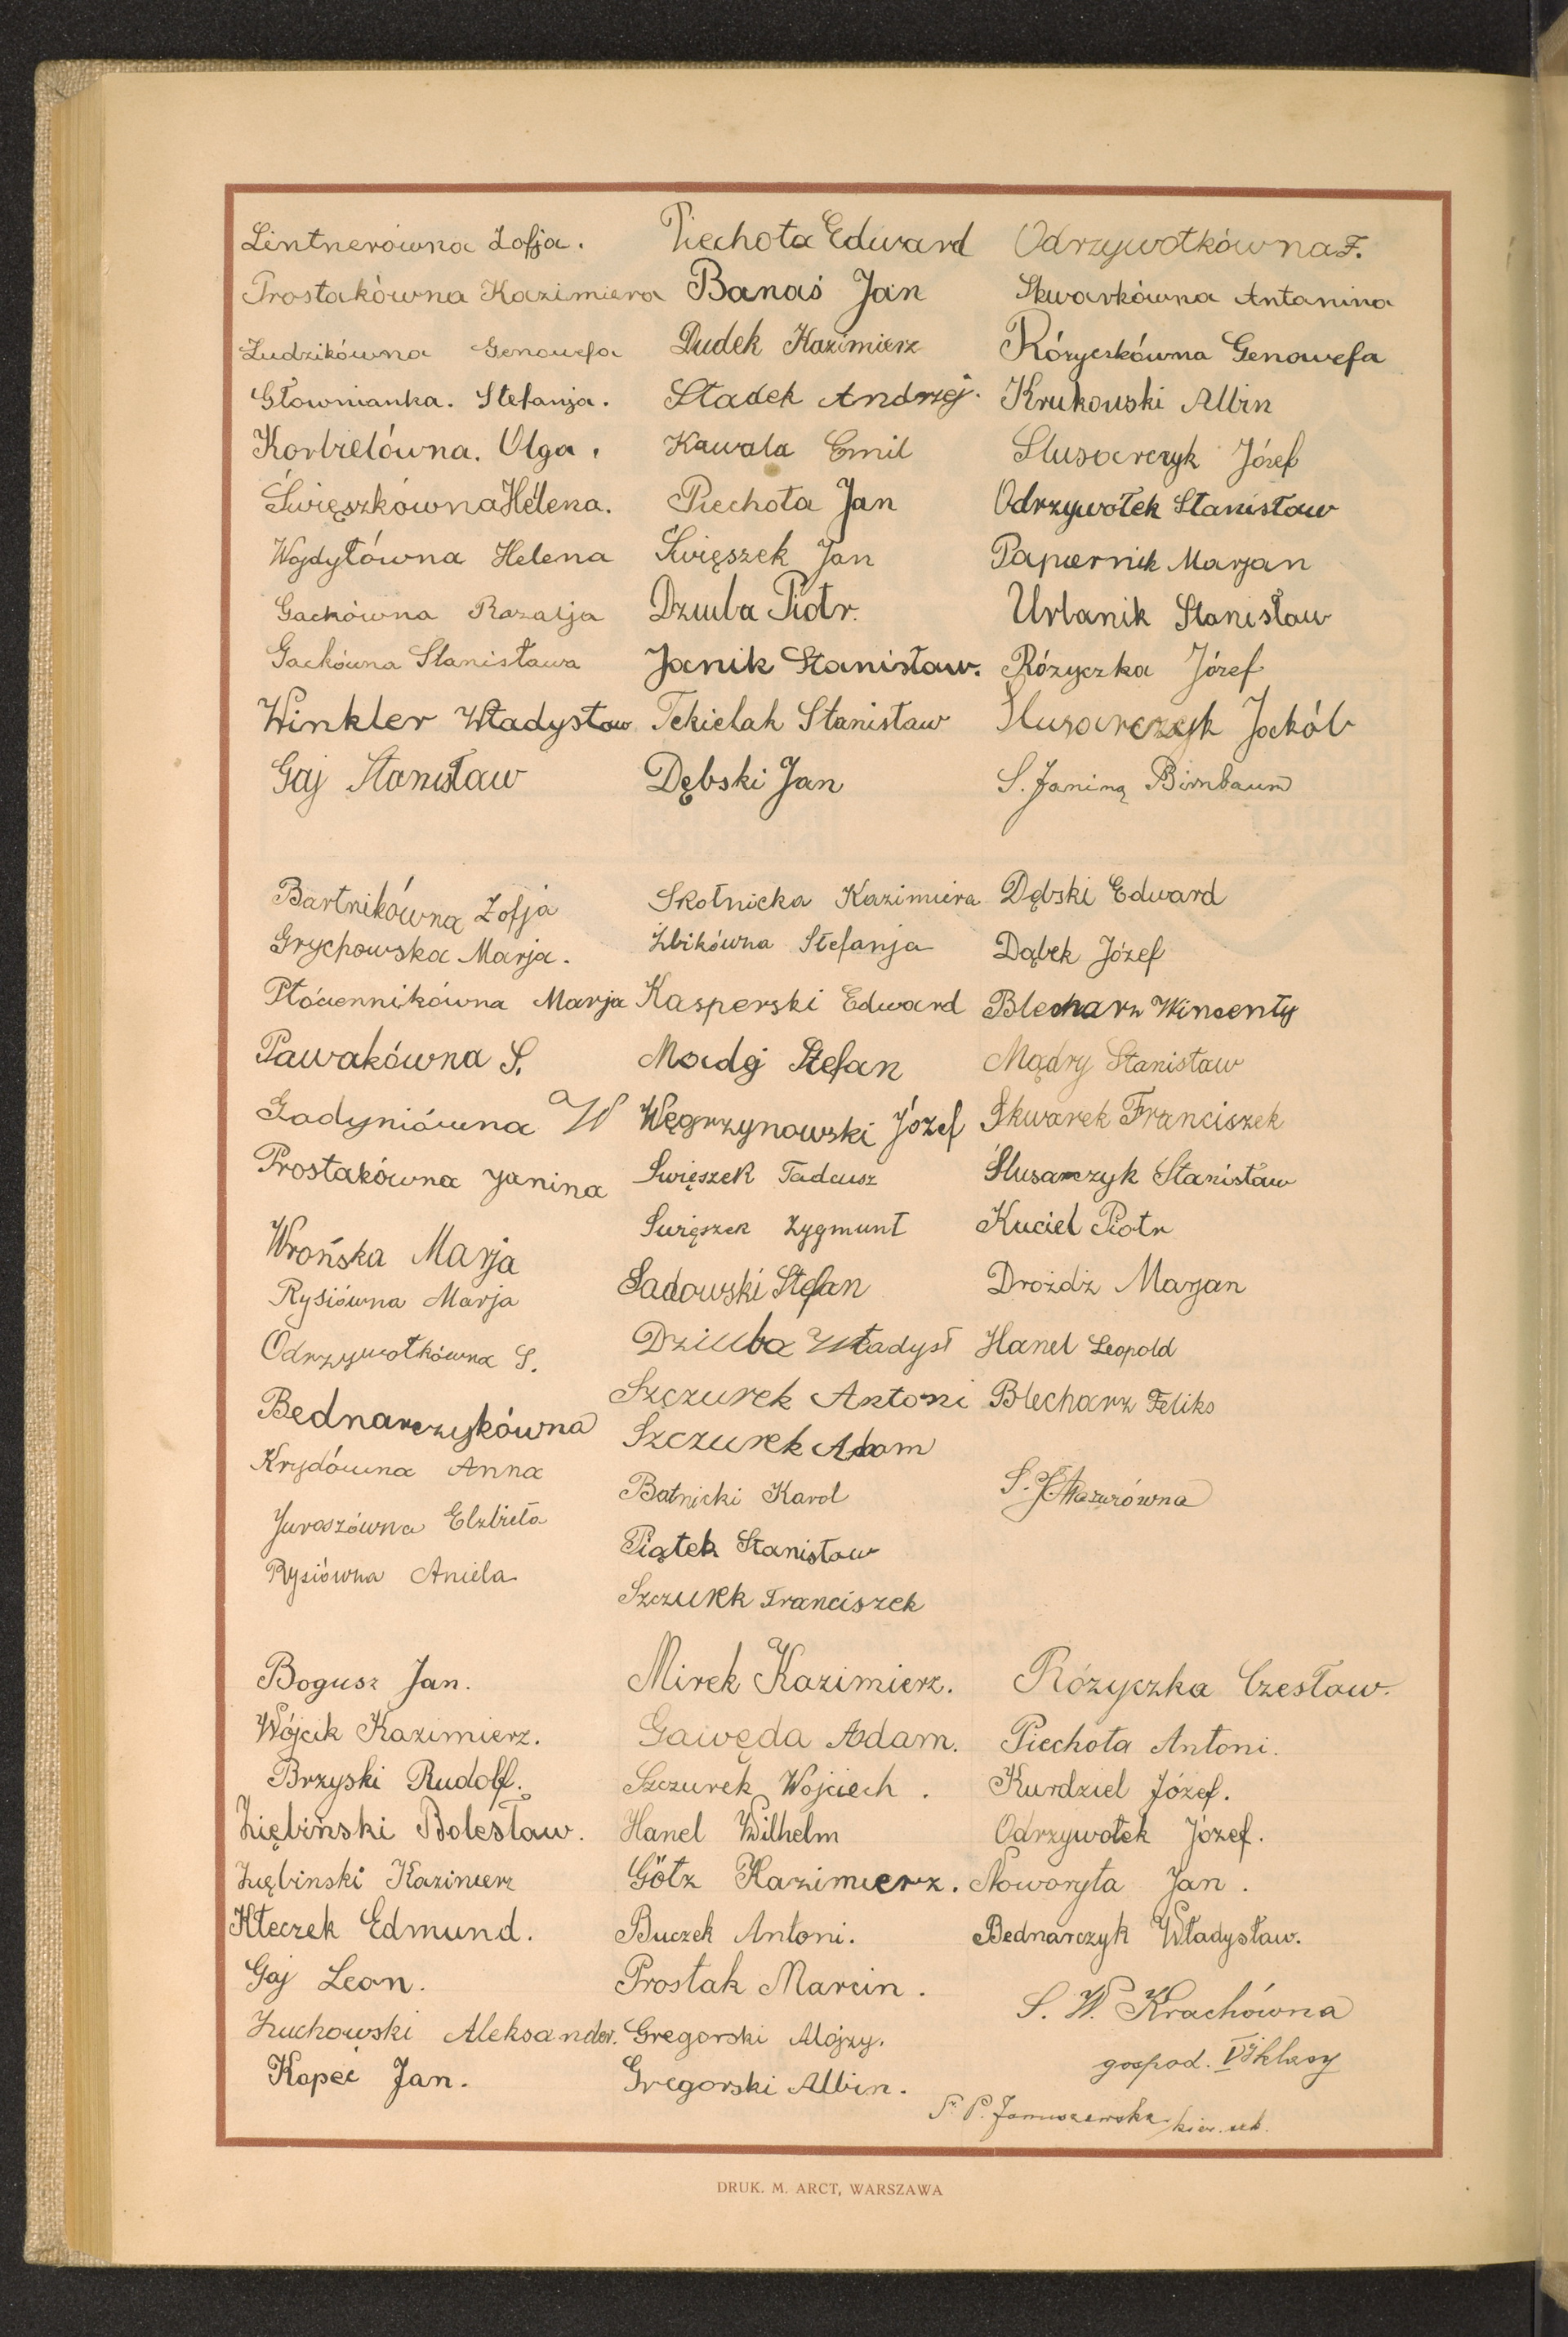 Lintnerówna Zofja.
Prostakówna Kazimiera
Ludzikówna Genowefa
Głownianka. Stefanja.
Korbielówna. Olga.
Święszkówna Helena.
Wojdyłówna Helena
Gackówna Rozalja
Gackówna Stanisława
Winkler Władysław
Gaj Stanisław
Piechota Edward
Banaś Jan
Dudek Kazimierz
Sładek Andrzej.
Kawala Emil
Piechota Jan
Święszek Jan
Dziuba Piotr.
Janik Stanisław.
Tekielak Stanisław
Dębski Jan
Odrzywołkówna F.
Skwarkówna Antonina
Różyczkówna Genowefa
Krukowski Albin
Slusarczyk Józef
Odrzywołek Stanisław
Papiernik Marjan
Urbanik Stanisław
Różyczka Józef
Ślusarczyk Jackób
S. Janina Birnbaum
Bartnikówna Zofja
Grychowska Marja.
Płóciennikówna Marja
Pawakówna S.
Zadyniówna W
Prostakówna Janina
Wrońska Marja
Rysiówna Marja
Odrzywołkówna S.
Bednarczykówna
Krydówna Anna
Juroszówna Elżbieta
Rysiówna Aniela
Skołnicka Kazimiera
Żbikówna Stefanja
Kasperski Edward
Madej Stefan
Węgrzynowski Józef
Swięszek Tadeusz
Swięszek Zygmunt
Sadowski Stefan
Dziuba Władysł
Szczurek Antoni
Szczurek Adam
Batnicki Karol
Piątek Stanisław
Szczurek Franciszek
Dębski Edward
Dąbek Józef
Blecharz Wincenty
Mądry Stanisław
Skwarek Franciszek
Ślusarczyk Stanisław
Kuciel Piotr
Drożdż Marjan
Hanel Leopold
Blecharz Feliks
S. J. Mazurówna
Bogusz Jan.
Wójcik Kazimierz.
Brzyski Rudolf.
Ziębiński Bolesław.
Ziębinski Kazimierz
Kłeczek Edmund.
Gaj Leon.
Żuchowski Aleksander.
Kopeć Jan.
Mirek Kazimierz.
Gawęda Adam.
Szczurek Wojciech.
Hanel Wilhelm
Götz Kazimierz.
Buczek Antoni.
Prostak Marcin.
Gregorski Alojzy.
Gregorski Albin.
Różyczka Czesław.
Piechota Antoni.
Kurdziel Józef.
Odrzywołek Józef.
Noworyta Jan.
Bednarczyk Władysław.
S. W. Krachówna
gospod. V klasy
S. P. Januszewska kier. szk.
DRUK. M. ARCT, WARSZAWA